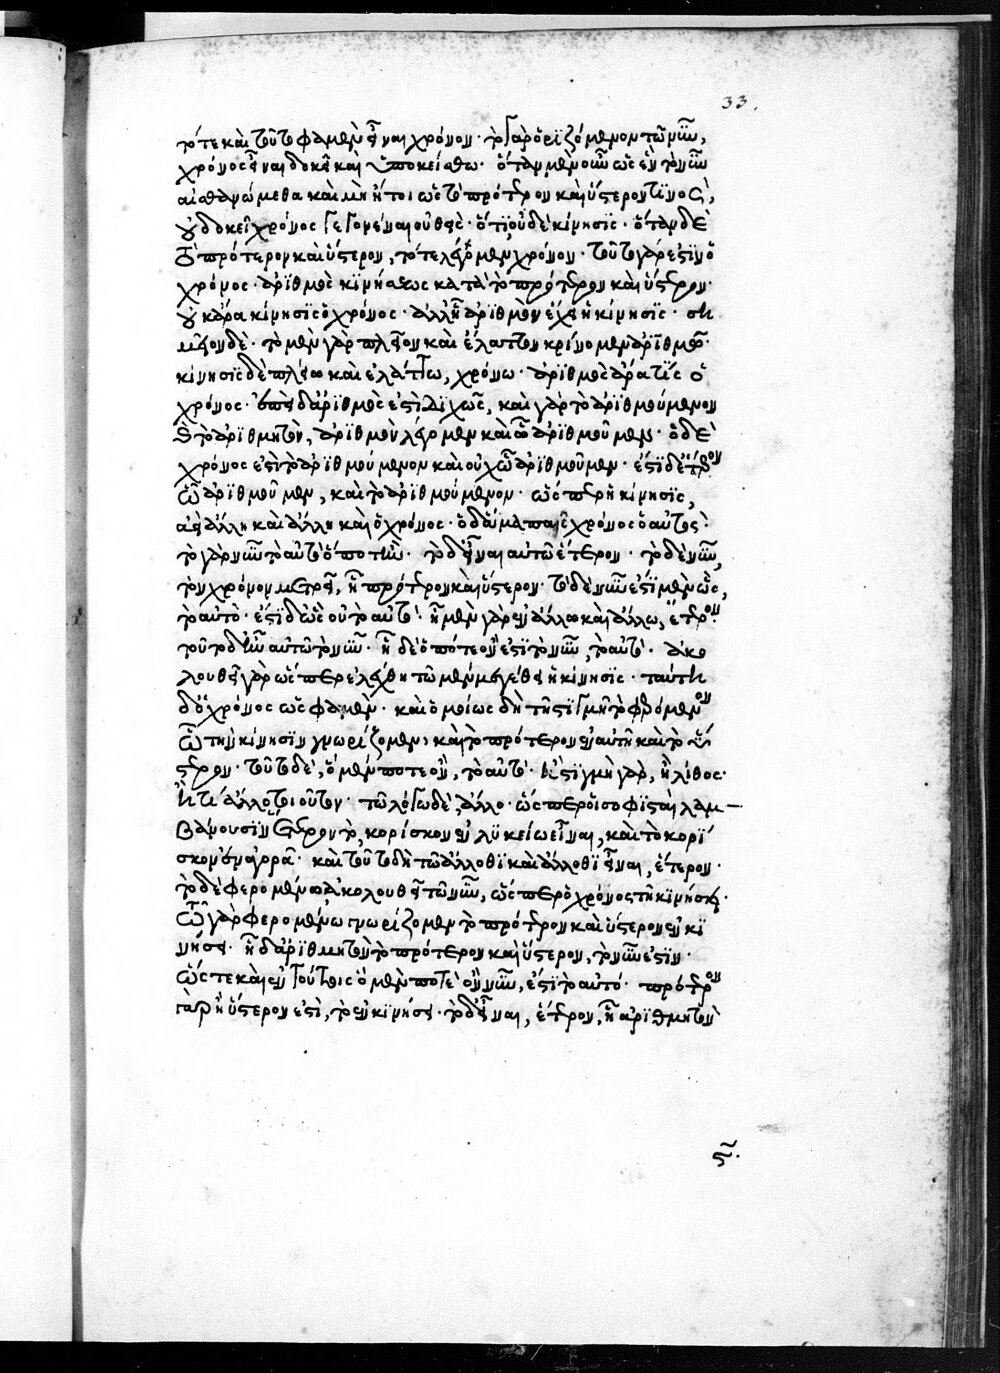 33.
τότε καὶ τοῦτο φαμὲν εἶναι χρόνον· τὸ γὰρ ὁριζόμενον τῷ νῦν,
χρόνος εἶναι δοκεῖ καὶ ὑποκείσθω· ὅταν μὲν οὖν ὡς ἓν τὸ νῦν
αἰσθανώμεθα καὶ μὴ ἤτοι ὡς τὸ πρότερον καὶ ὕστερον τινὸς,
οὐ δοκεῖ χρόνος γεγονέναι οὐθεὶς· ὅτι οὐδὲ κίνησις· ὅταν δὲ
τὸ πρότερον καὶ ὕστερον, τότε λέγομεν χρόνον· τοῦτο γάρ ἐστιν ὁ
χρόνος· ἀριθμὸς κινήσεως κατὰ τὸ πρότερον καὶ ὕστερον·
οὐκ ἄρα κίνησις ὁ χρόνος· ἀλλ' ἧ ἀριθμὸν ἔχει ἡ κίνησις· ση
μεῖον δὲ· τὸ μὲν γὰρ πλεῖον καὶ ἔλαττον κρίνομεν ἀριθμῷ·
κίνησις δὲ πλείω καὶ ἐλάττω, χρόνω· ἀριθμὸς ἄρα τίς ὁ
χρόνος· ἐπεὶ δ' ἀριθμὸς ἐστὶ διχῶς, καὶ γὰρ τὸ ἀριθμούμενον
καὶ τὸ ἀριθμητὸν, ἀριθμὸν λέγομεν καὶ ᾧ ἀριθμοῦμεν· ὁ δὲ
χρόνος ἐστὶ τὸ ἀριθμούμενον καὶ οὐχ ᾧ ἀριθμοῦμεν· ἔστι δ' ἕτερον
ᾧ ἀριθμοῦμεν, καὶ τὸ ἀριθμούμενον· ὥσπερ ἡ κίνησις,
αἰεὶ ἄλλη καὶ ἄλλη καὶ ὁ χρόνος· ὁ δ' ἅμα πᾶς χρόνος ὁ αὐτὸς·
τὸ γὰρ νῦν τὸ αὐτὸ ὅ ποτ' ἦν· τὸ δ' εἶναι αὐτῶ ἕτερον· τὸ δὲ νῦν,
τὸν χρόνον μετρεῖ, ἧ πρότερον καὶ ὕστερον· τὸ δὲ νῦν ἐστὶ μὲν ὡς,
τὸ αὐτό· ἔστι δ' ὡς οὐ τὸ αὐτὸ· ἧ μὲν γὰρ ἐν ἄλλω καὶ ἄλλω, ἕτερον·
τοῦτο δ' ἦν αὐτῶ τὸ νῦν· ἧ δὲ ὅ ποτε ὄν ἐστι τὸ νῦν, τὸ αὐτὸ· ἀκο
λουθεῖ γὰρ ὥσπερ ἐλέχθη τῶ μὲν μεγέθει ἡ κίνησις· ταύτη
δ' ὁ χρόνος ὥς φαμεν· καὶ ὁμοίως δὴ τῆ στιγμῆ τὸ φερόμενον
ᾧ τὴν κίνησιν γνωρίζομεν, καὶ τὸ πρότερον ἐν αὐτῆ καὶ τὸ ὕ
στερον· τοῦτο δὲ, ὃ μέν ποτε ὄν, τὸ αὐτὸ· ἢ στιγμὴ γὰρ, ἢ λίθος·
ἤ τι ἄλλο τοιοῦτον· τῶ λόγω δὲ, ἄλλο· ὥσπερ οἱ σοφισταὶ λαμ–
βάνουσιν ἕτερον τὸ, κορίσκον ἐν λυκείω εἶναι, καὶ τὸ κορί
σκον ἐν ἀγορᾶ· καὶ τοῦτο δὴ τῶ ἄλλοθι καὶ ἄλλοθι εἶναι, ἕτερον·
τῶ δὲ φερομένω ἀκολουθεῖ τὸ νῦν, ὥσπερ ὁ χρόνος τῆ κινήσει·
τῶ γὰρ φερομένω γνωρίζομεν τὸ πρότερον καὶ ὕστερον ἐν κι
νήσει· ἧ δ' ἀριθμητὸν τὸ πρότερον καὶ ὕστερον, τὸ νῦν ἐστιν·
ὥστε καὶ ἐν τούτοις ὃ μέν ποτε ὂν νῦν, ἐστὶ τὸ αὐτό· πρότερον
γὰρ ἢ ὕστερον ἐστὶ, τὸ ἐν κινήσει· τὸ δ' εἶναι, ἕτερον, ἧ ἀριθμητὸν
ς·